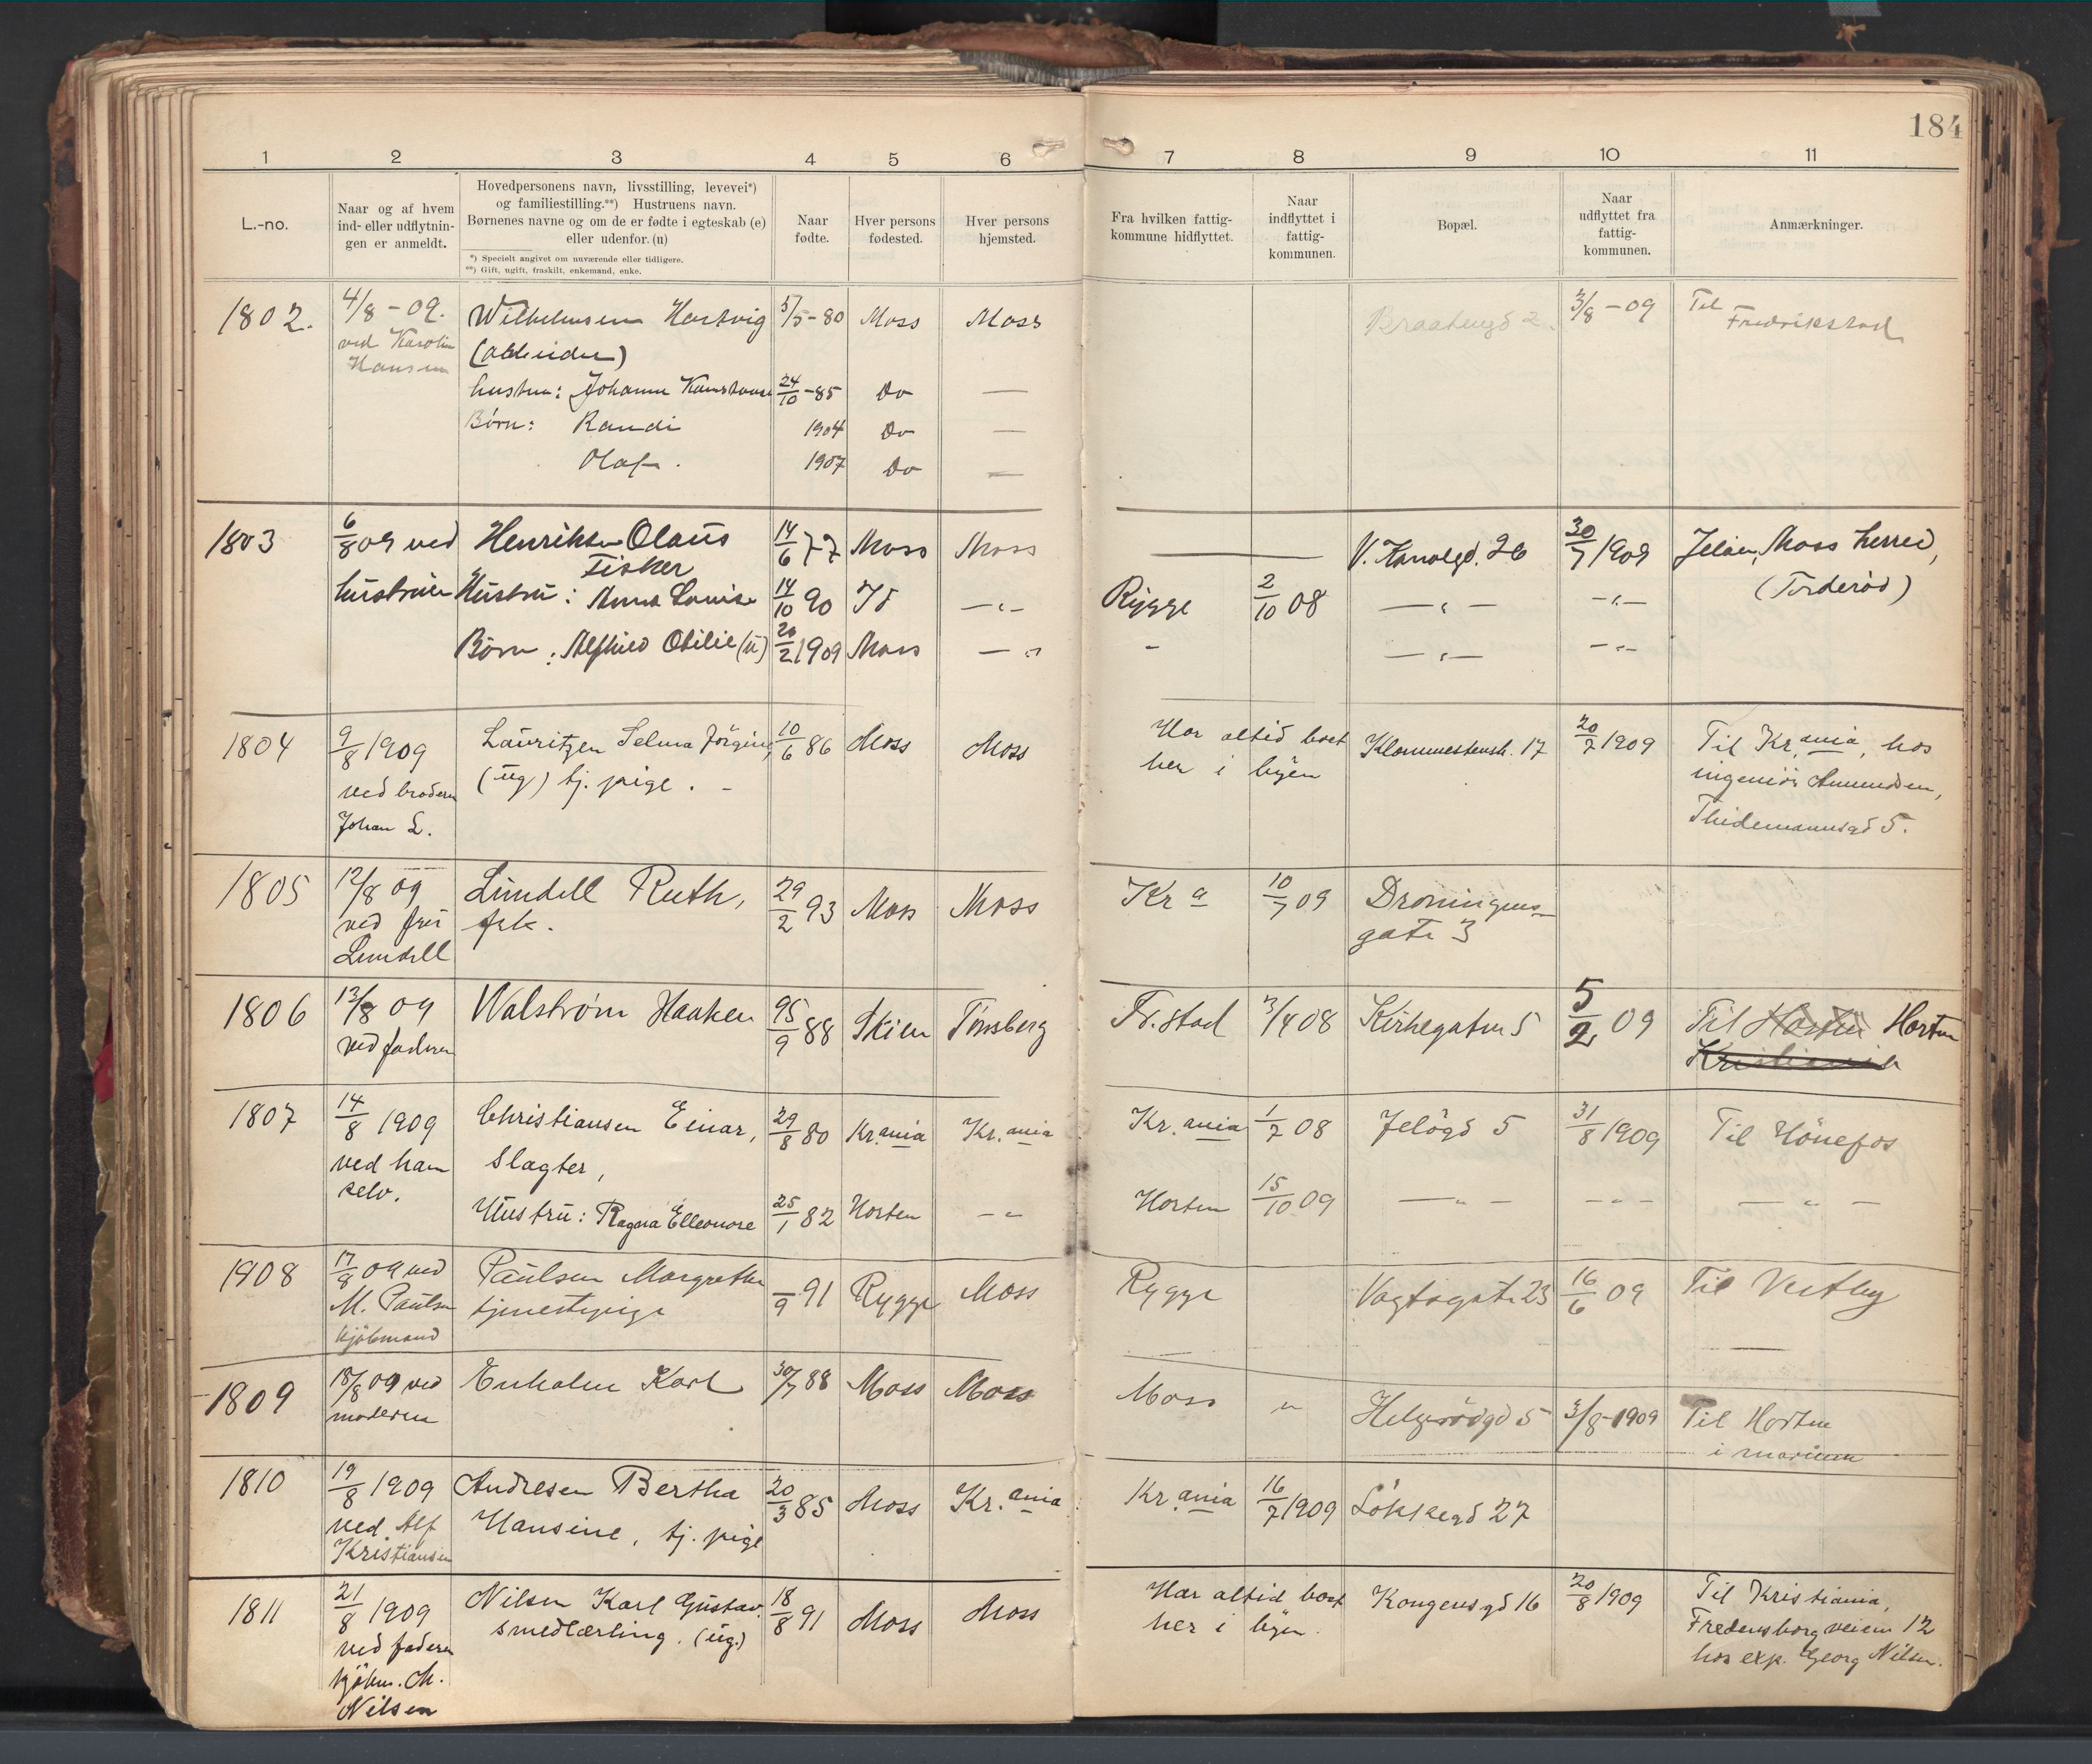 184
1 2 3 4 5 6 7 8 9 10 11
L.-no.
Naar og af hvem
ind- eller udflytnin-
gen er anmeldt.
Hovedpersonens navn, livsstilling, levevei*)
og familiestilling.**) Hustruens navn.
Børnenes navne og om de er fødte i egteskab (e)
eller udenfor. (u)
*) Specielt angivet om nuværende eller tidligere.
**) Gift, ugift, fraskilt, enkemand, enke.
Naar
fødte.
Hver persons
fødested.
Hver persons
hjemsted.
Fra hvilken fattig-
kommune hidflyttet.
Naar
indflyttet i
fattig-
kommunen.
Bopæl.
Naar
udflyttet fra
fattig-
kommunen.
Anmærkninger.
1802. 4/8 - 09. Wilhelmsen Hartvig 5/5 - 80 Moss Moss 3/8 - 09 Til
ved Karolin (arbeider) Fredrikstad
Hansen
hustru: Johanne 24/10 - 85 Do —
Børn: Randi 1904 Do —
Olaf. 1907 Do —
1803 6/8 09 ved Henriksen Olaus 14/6 77 Moss Moss — V. Kanalgd. 26 30/7 1909 Jeløen, Moss herred,
Fisker
hustruen Hustru: Anna Louise 14/10 90 Id —"— Rygge 2/10 08 —"— —"— (Torderød)
Børn: Alfhild Otilie (u) 20/2 1909 Moss —" - —"— —"—
1804 9/8 1909 Lauritzen Selma Jörgine, 10/6 86 Moss Moss Har altid boet Klommestensk. 17 20/7 1909 Til Kr.ania, hos
ved broderen (ug) tj. pige. - her i byen ingeniör Amundsen,
Johan L. Thidemannsgd 5.
1805 12/8 09 Lundell Ruth, 29/2 93 Moss Moss Kr a 10/7 09 Dronningens-
ved fru frk. gate 3
Lundell
1806 13/8 09 Walstrøm Haaken 25/9 88 Skien Tønsberg Fr.stad 3/4 08 Kirkegaten 5 5/2 09 Til Horten Horten
ved faderen Kristiania
1807 14/8 1909 Christiansen Einar, 29/8 80 Kr.ania Kr.ania Kr.ania 1/7 08 Jelögd 5 31/8 1909 Til Hönefos
ved ham Slagter,
selv.
Hustru: Ragna Elleonore 25/1 82 Horten —"— Horten 15/10 09 —"— —"— —"—
1908 17/8 09 ved Paulsen Margrethe /9 91 Rygge Moss Rygge Vogtsgate 23 16/6 09 Til Vestby
M. Paulsen tjenestepige
kjöbmand
1809 18/8 09 ved Enholm Karl 30/7 88 Moss Moss Moss " Helgerödgd 5 3/8 - 1909 Til Horten
moderen i marinen
1810 19/8 1909 Andresen Bertha 20/3 85 Moss Kr.ania Kr.ania 16/7 1909 Lökkegd 27
ved Alf Hansine, tj. pige
Kristiansen
1811 21/8 1909 Nilsen Karl Gustav. 18/8 91 Moss Moss Har altid boet Kongensgd 16 20/8 1909 Til Kristiania,
ved faderen smedlærling. (ug.) her i byen. Fredensborgveien 12
kjöbm. M. hos exp. Georg Nilsen.
Nilsen